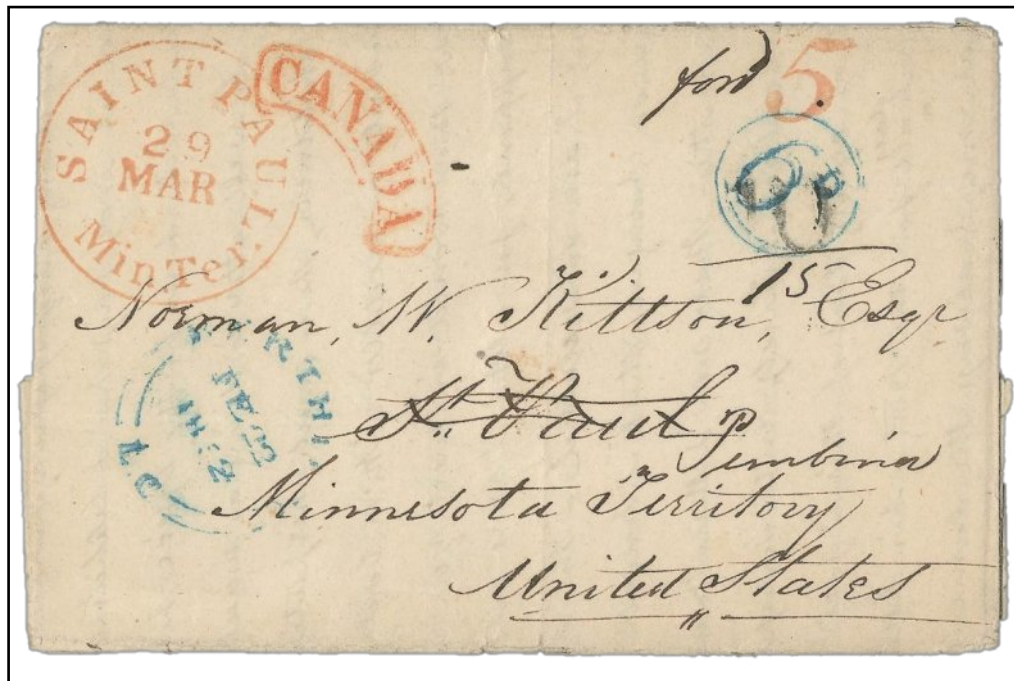 SAINT PAUL
29
MAR
MinTer.
CANADA
ford
5
6 D
10
15
Norman, W. Kittson, Esqr
St. Paul
Pembina
Minnesota Territory
United States
FE 23
1852
L.C